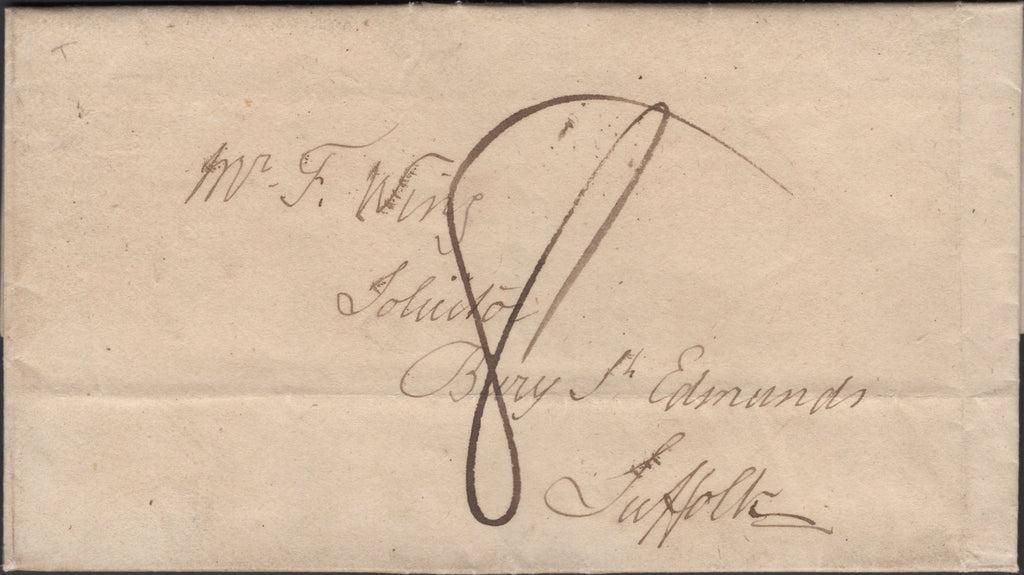 Mr. F. Wing
Solicitor
8
Bury St. Edmunds
Suffolk